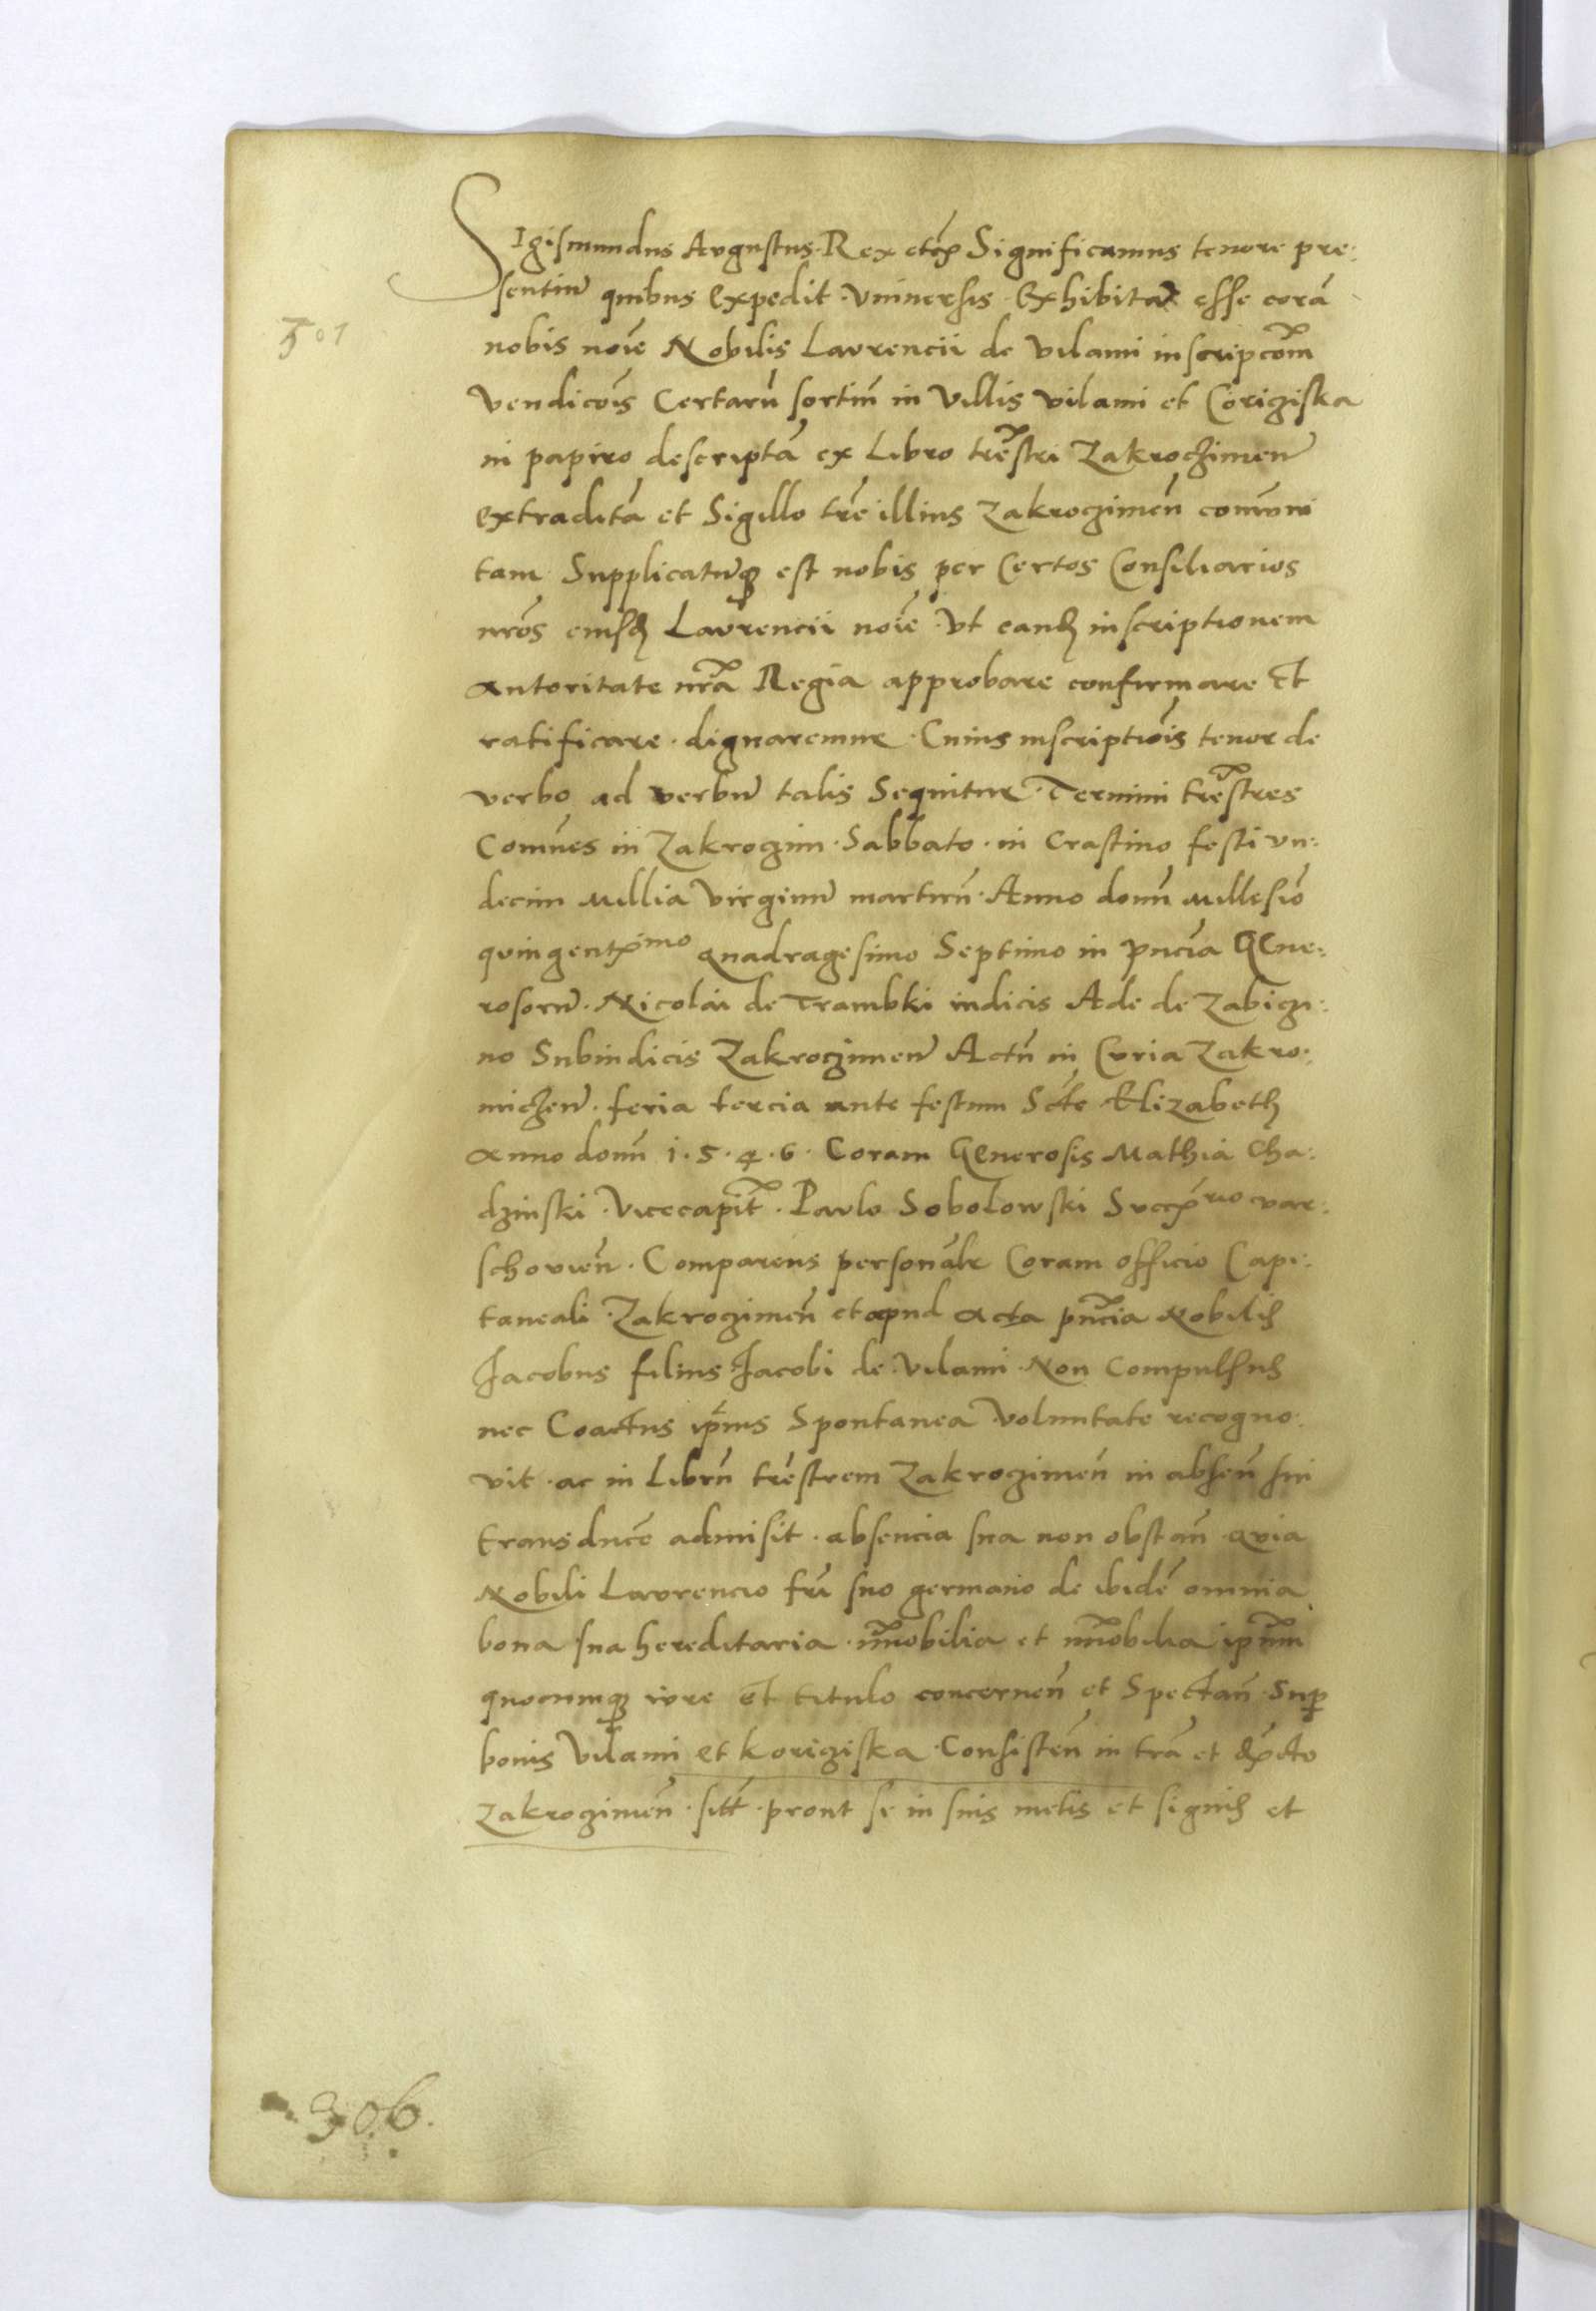 SIgismundus Augustus Rex etc̃ Significamus tenore pre:
sentiũ quibus expedit vniuersis Exhibitã esse corã
501
nobis noĩe Nobilis Laurencii de Vilami inscripcõm
Vendicõis Certarũ sortiũ in Villis vilami et Coriziska
in papiro descriptã ex Libro trẽstri Zakroczimeñ
Extraditã et Sigillo trẽ illius Zakrozimeñ comuni
tam Supplicatũqȝ est nobis per Certos Consiliarios
nrõs eiusdẽ Laurencii noĩe vt eandẽ inscriptionem
autoritate nrã Regia approbare confirmare Et
ratificare. dignaremur. Cuius inscriptiõis tenor de
verbo ad verbũ talis Sequitur. Termini trẽstres
Comũes in Zakrozim. Sabbato. in Crastino festi vn:
decim Millia Virginũ martirũ. Anno domĩ Millesiõ
quingentesimo quadragesimo Septimo in pñcia GEne:
rosorũ. Nicolai de Trambki iudicis Ade de Zabiczi:
no Subiudicis Zakrozimeñ Actũ in Curia Zakro:
miczeñ. feria tercia ante festum Sctẽ Elizabeth
Anno domĩ 1.5.4.6. Coram GEnerosis Mathia Cha:
dzinski Vicecapit̃. Paulo Sobolowski Succ̃rio var:
schovieñ. Comparens personal̃r Coram officio Capi:
taneali Zakrozimeñ et apud acta pñcia Nobilis
Jacobus filius Jacobi de Vilami Non Compulsus
nec Coactus ip̃ius Spontanea Voluntate recogno:
vit. ac in Librũ trẽstrem Zakrozimeñ in abseñ sui
transducẽ admisit. absencia sua non obstañ quia
Nobili Laurencio frĩ suo germano de ibidẽ omnia
bona sua hereditaria. m̃obilia et im̃obilia ip̃um
quocumqȝ iure Et titulo concerneñ et Spectañ Suꝑ
bonis Vilami et Koriziska Consisteñ in trã et distcto
Zakrozimeñ. sitt̃. prout se in suis metis et signis et
306.